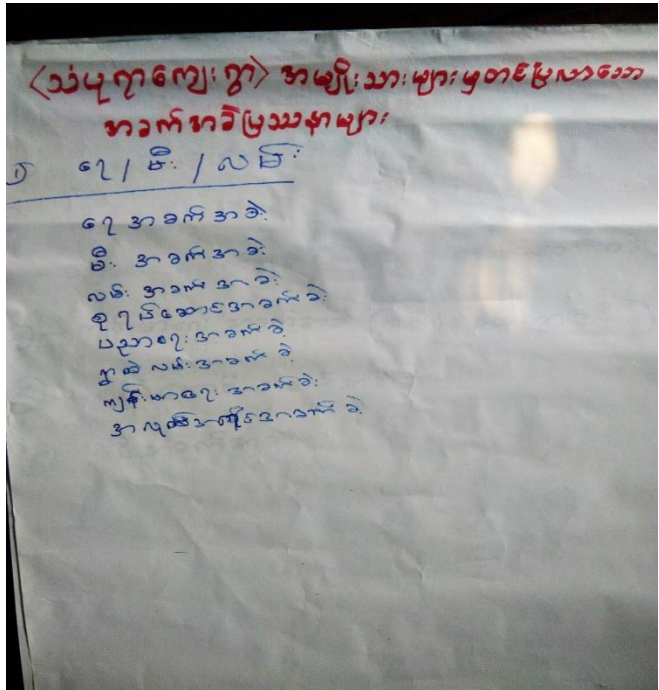 (သံပုရာကျေးရွာ) အမျိုးသားများမှတင်ပြလာသော
အခက်အခဲပြဿနာများ
၁ ရေ / မီး / လမ်း
ရေ အခက်အခဲ
မီး အခက်အခဲ
လမ်း အခက်အခဲ
စုရပ်ဆောင်အခက်ခဲ
ပညာရေးအခက်ခဲ
ရွာထဲလမ်းအခက်ခဲ
ကျန်းမာရေး အခက်ခဲ
အလုပ်အကိုင်အခက်ခဲ